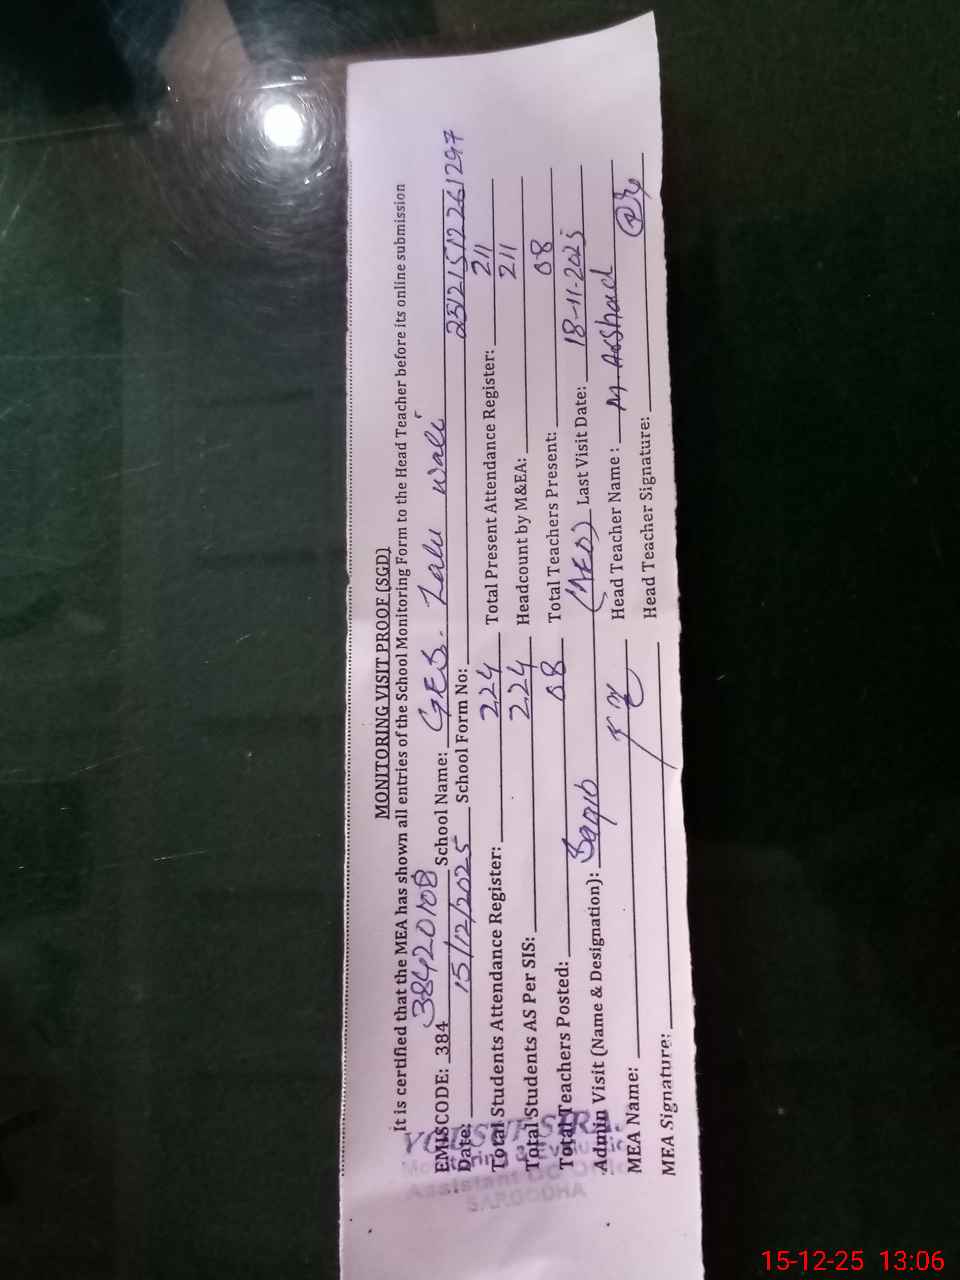 MONITORING VISIT PROOF (SGD)
It is certified that the MEA has shown all entries of the School Monitoring Form to the Head Teacher before its online submission
EMISCODE: 384 38420108 School Name: GES. Lalu wali
Date: 15/12/2025 School Form No: 25121512261297
Total Students Attendance Register: 224 Total Present Attendance Register: 211
Total Students AS Per SIS: 224 Headcount by M&EA: 211
Total Teachers Posted: 08 Total Teachers Present: 08
Admin Visit (Name & Designation): Saqib (AEO) Last Visit Date: 18-11-2025
MEA Name: Head Teacher Name : M Arshad
MEA Signature: Head Teacher Signature:
Monitoring & Evaluation
Assistant
SARGODHA
15-12-25 13:06